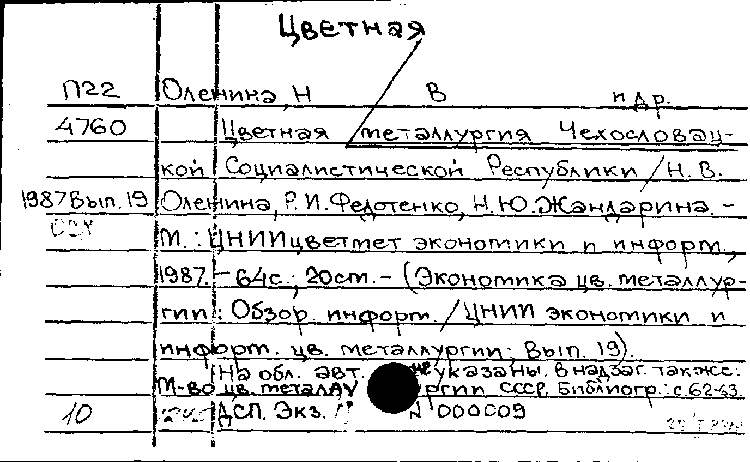 Цветная
П22 Оленина, Н В и др.
4760 Цветная металлургия Чехословац-
кой Социалистической Республики / Н.В.
1987 Вып. 19 Оленина, Р.И. Федотенко, Н.Ю. Жандарина. -
М.: ЦНИИцветмет экономики и информ.,
1987. - 64с.; 20см. - (Экономика цв. металлур-
гии: Обзор. информ. / ЦНИИ экономики и
информ. цв. металлургии; Вып. 19).
На обл. авт. не указаны. В надзаг. также:
М-во цв. металлургии СССР. Библиогр.: с. 62-63.
10 ДСП. Экз. N 000009